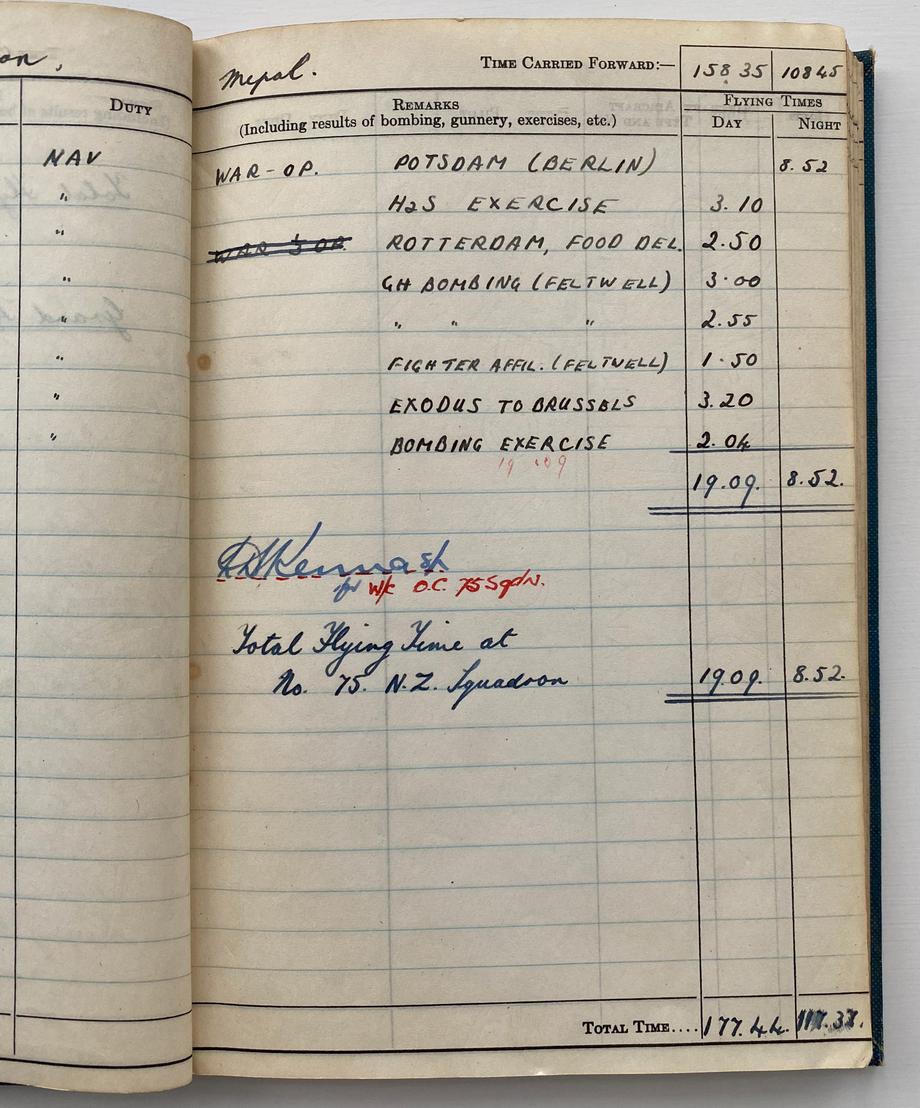 on,
Mepal. TIME CARRIED FORWARD:— 158 35 108 45
DUTY
REMARKS FLYING TIMES
(Including results of bombing, gunnery, exercises, etc.) DAY NIGHT
NAV WAR-OP. POTSDAM (BERLIN) 8.52
" H2S EXERCISE 3.10
" WAR OP. ROTTERDAM, FOOD DEL. 2.50
" GH BOMBING (FELTWELL) 3.00
" " " " 2.55
" FIGHTER AFFIL. (FELTWELL) 1.50
" EXODUS TO BRUSSELS 3.20
" BOMBING EXERCISE 2.04
19 09
19.09. 8.52.
for W/C O.C. 75 Sqdn.
Total Flying Time at
No. 75. N.Z. Squadron 19.09. 8.52.
TOTAL TIME.... 177.44. 117.37.